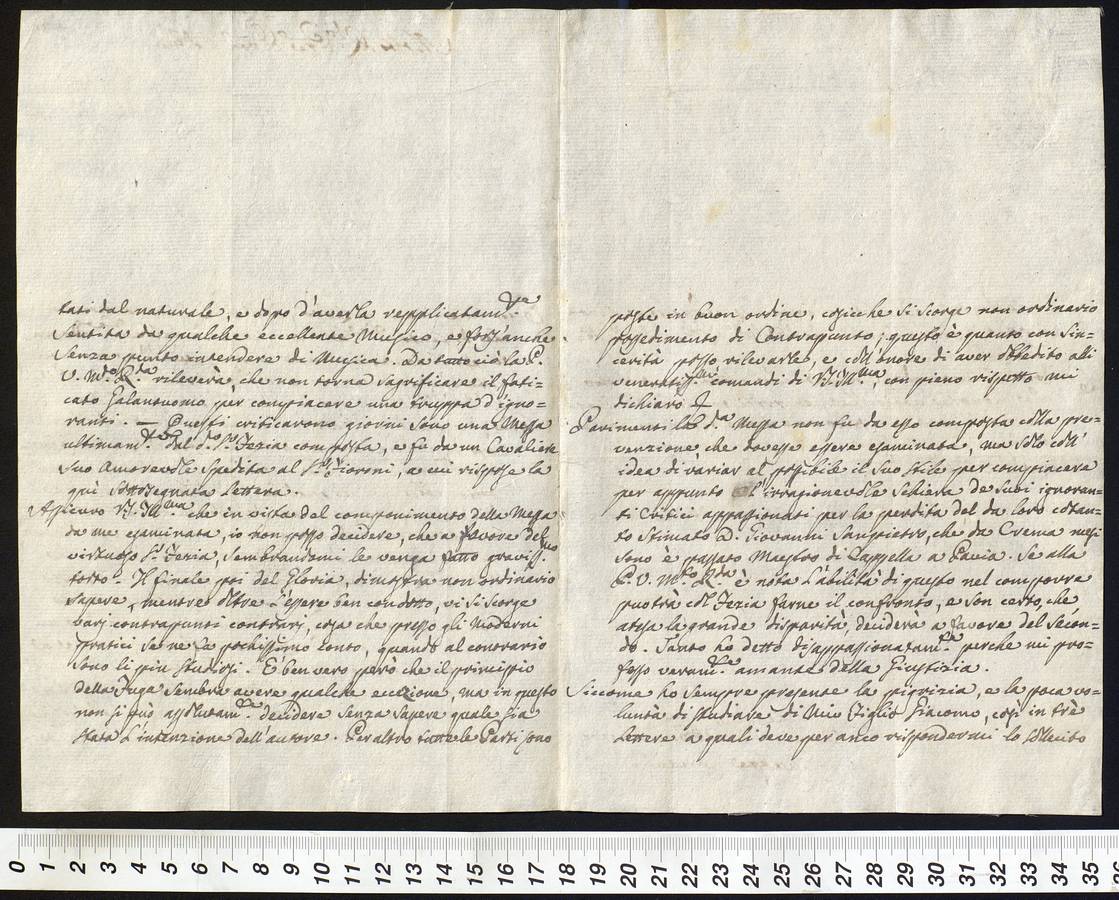 tati dal naturale, e dopo d'averla repplicatam.te
Sentita da qualche eccellente Musico, e fors'anche
Senza punto intendere di Musica. Da tutto ciò la P.
V. M.to R.da rileverà, che non torna sagrificare il fati=
cato Galantuomo per compiacere una truppa d'igno=
ranti. — Questi criticarono giorni sono una Messa
ultimam.te dal d.o S.r Fezia composta, e fu da un Cavaliere
Suo Amorevole Spedita al S.r Fioroni, a cui rispose la
quì sottosegnata Lettera.
Assicuro V.S. Ill.ma che in vista del componimento della Messa
da me esaminata, io non posso decidere, che a favore del suo
virtuoso S.r Fezia, Sembrandomi le venga fatto graviss.o
torto. Il finale poi del Gloria, dimostra non ordinario
Sapere, mentre oltre l'essere ben condotto, vi si scorge
varj contrapunti contrarj, cosa che presso gli Moderni
Pratici se ne fa pochissimo conto, quando al contrario
Sono li piu studiosi. E ben vero però che il principio
della Fuga Sembra avere qualche eccezione, ma in questo
non si può assolutam.te decidere Senza Sapere quale sia
Stata l'intenzione dell'autore. Per altro tutte le Parti sono
poste in buon ordine, cosicche si Scorge non ordinario
possedimento di Contrapunto; questo è quanto con Sin=
cerità posso rilevarle, e coll'onore di aver obbedito alli
veneratiss.mi comandi di V.S. Ill.ma, con pieno rispetto mi
dichiaro
Parimenti la d.a Messa non fu da esso composta colla pre=
venzione che dovesse essere esaminata, ma solo coll'
idea di variar al possibile il Suo Stile per compiacere
per appunto l'irragionevole Schiera de Suoi ignoran=
ti Critici appassionati per la perdita del da loro cotan=
to Stimato D. Giovanni Sanpietro, che da Crema mesi
Sono è passato Maestro di Cappella a Pavia. Se alla
P. V. M.to R.da è nota l'abilità di questo nel comporre
puotrà col Fezia farne il confronto, e son certo, che
atesa la grande disparità, deciderà a favore del Secon=
do. Tanto ho detto disappassionatam.te perche mi pro=
fesso veram.te amante della Giustizia.
Siccome ho sempre presente la pigrizia, e la poca vo=
luntà di studiare di Mio Figlio Giacomo, così in trè
Lettere a quali deve per anco rispondermi lo sollecito